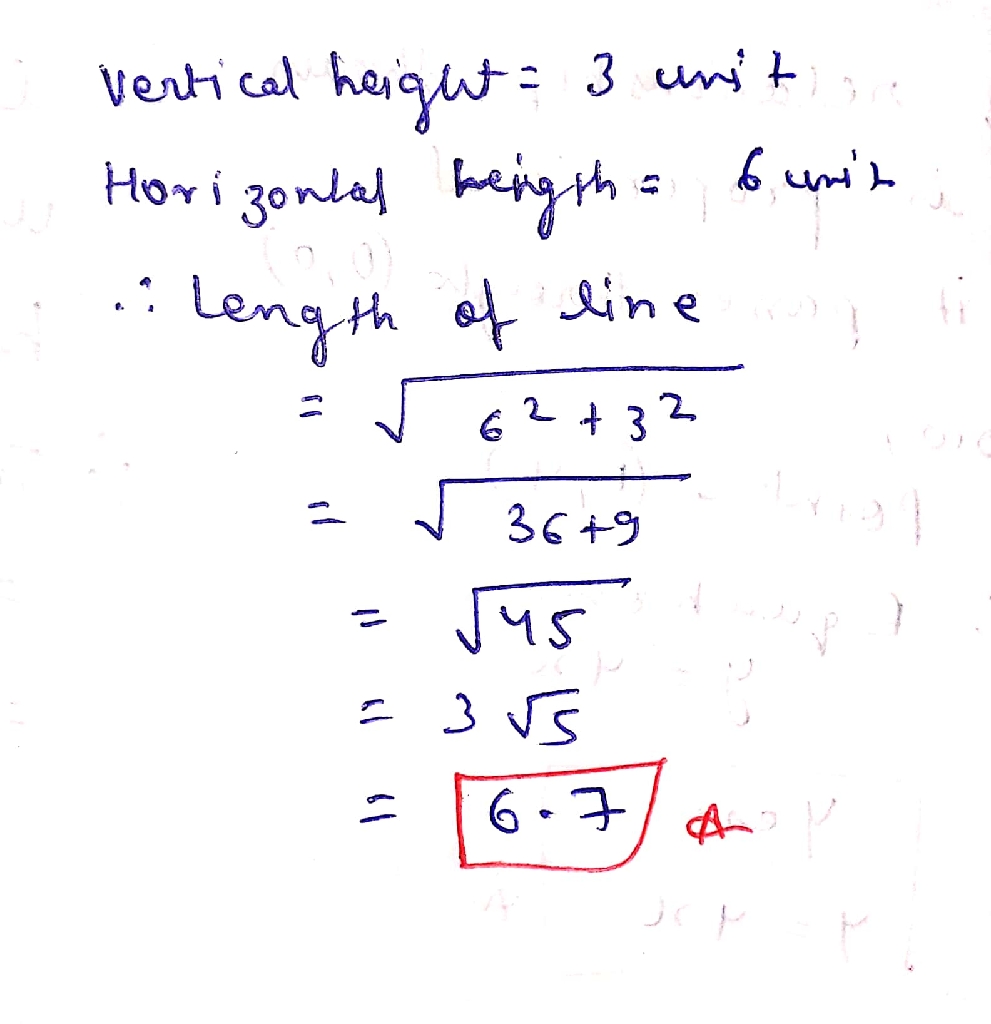 Vertical height = 3 unit
Horizontal length = 6 unit
∴ Length of line
= √6² + 3²
= √36+9
= √45
= 3√5
= 6.7 A